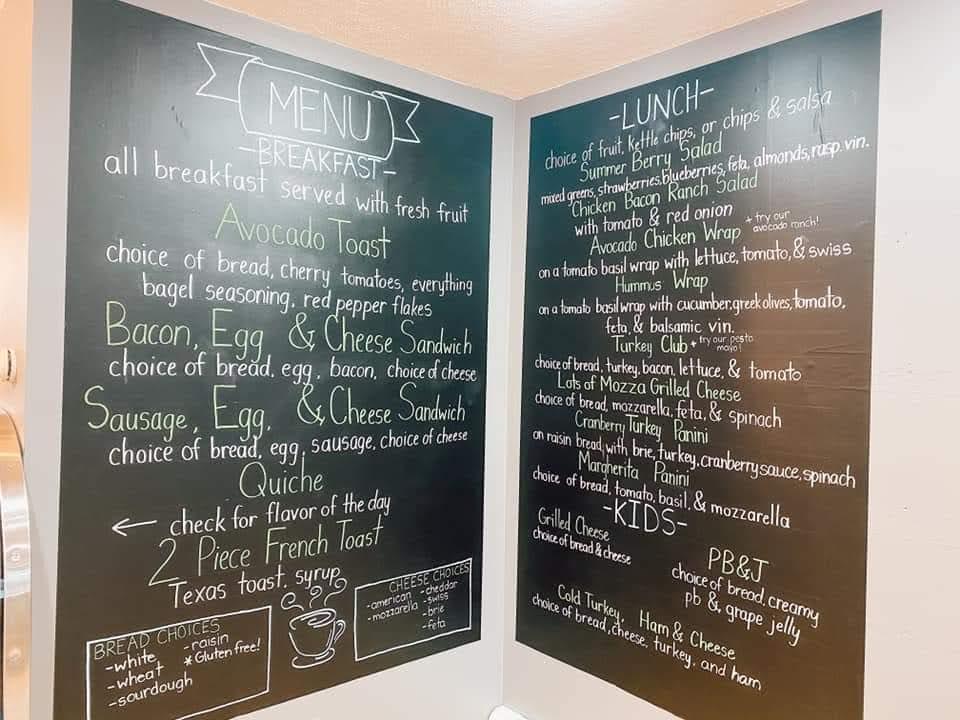 MENU
-BREAKFAST-
all breakfast served with fresh fruit
Avocado Toast
choice of bread, cherry tomatoes, everything
bagel seasoning, red pepper flakes
Bacon, Egg & Cheese Sandwich
choice of bread, egg, bacon, choice of cheese
Sausage, Egg, & Cheese Sandwich
choice of bread, egg, sausage, choice of cheese
Quiche
← check for flavor of the day
2 Piece French Toast
Texas toast, syrup
BREAD CHOICES
-white
-wheat
-sourdough
-raisin
*Gluten free!
CHEESE CHOICES
-american
-mozzarella
-cheddar
-swiss
-brie
-feta
-LUNCH-
choice of fruit, kettle chips, or chips & salsa
Summer Berry Salad
mixed greens, strawberries, blueberries, feta, almonds, rasp. vin.
Chicken Bacon Ranch Salad
with tomato & red onion
Avocado Chicken Wrap + try our avocado ranch!
on a tomato basil wrap with lettuce, tomato, & swiss
Hummus Wrap
on a tomato basil wrap with cucumber, greek olives, tomato,
feta, & balsamic vin.
Turkey Club + try our pesto mayo!
choice of bread, turkey, bacon, lettuce, & tomato
Lots of Mozza Grilled Cheese
choice of bread, mozzarella, feta, & spinach
Cranberry Turkey Panini
on raisin bread with brie, turkey, cranberry sauce, spinach
Margherita Panini
choice of bread, tomato, basil, & mozzarella
-KIDS-
Grilled Cheese
choice of bread & cheese
PB&J
choice of bread, creamy
pb & grape jelly
Cold Turkey, Ham & Cheese
choice of bread, cheese, turkey, and ham